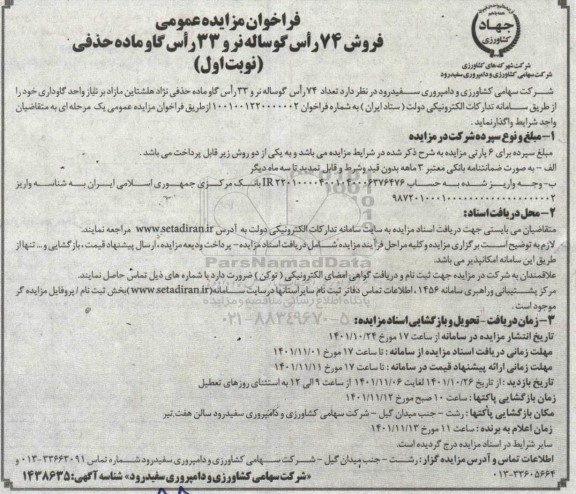 فراخوان مزایده عمومی
فروش ۷۴ رأس گوساله نر و ۳۳ رأس گاو ماده حذفی
(نوبت اول)
جهاد
کشاورزی
شرکت شهرک های کشاورزی
شرکت سهامی کشاورزی و دامپروری سفیدرود
شرکت سهامی کشاورزی و دامپروری سفیدرود در نظر دارد تعداد ۷۴ رأس گوساله نر و ۳۳ رأس گاو ماده حذفی نژاد هلشتاین مازاد بر نیاز واحد گاوداری خود را
از طریق سامانه تدارکات الکترونیکی دولت (ستاد ایران) به شماره فراخوان ۱۰۰۱۰۰۱۲۲۰۰۰۰۰۲ از طریق فراخوان مزایده عمومی یک مرحله ای به متقاضیان
واجد شرایط واگذار نماید.
۱- مبلغ و نوع سپرده شرکت در مزایده
مبلغ سپرده برای ۶ پارتی مزایده به شرح ذکر شده در شرایط مزایده می باشد و به یکی از دو روش زیر قابل پرداخت می باشد.
الف - به صورت ضمانتنامه بانکی معتبر ۳ ماهه بدون قید و شرط و قابل تمدید تا سه ماه دیگر
ب- وجه واریز شده به حساب IR۲۳۰۱۰۰۰۰۴۰۰۱۰۳۰۰۰۶۳۷۶۴۷۶ بانک مرکزی جمهوری اسلامی ایران به شناسه واریز
۹۸۷۲۰۱۰۰۰۱۰۰۰۰۰۰۰۰۰۰۰۰۰۰۰۰۰۰۲
۲- محل دریافت اسناد:
متقاضیان می بایستی جهت دریافت اسناد مزایده به سایت سامانه تدارکات الکترونیکی دولت به آدرس www.setadiran.ir مراجعه نمایند.
لازم به توضیح است برگزاری مزایده و کلیه مراحل فرآیند مزایده شامل دریافت اسناد مزایده - پرداخت ودیعه مزایده، ارسال پیشنهاد قیمت، بازگشایی و... تنها از
طریق این سامانه امکانپذیر می باشد.
علاقمندان به شرکت در مزایده جهت ثبت نام و دریافت گواهی امضای الکترونیکی (توکن) ضرورت دارد با شماره های ذیل تماس حاصل نمایند.
مرکز پشتیبانی و راهبری سامانه ۱۴۵۶، اطلاعات تماس دفاتر ثبت نام سایر استانها در سایت سامانه (www.setadiran.ir) بخش ثبت نام / پروفایل مزایده گر
موجود است.
۳- زمان دریافت - تحویل و بازگشایی اسناد مزایده:
تاریخ انتشار مزایده در سامانه: از ساعت ۱۷ مورخ ۱۴۰۱/۱۰/۲۴
مهلت زمانی دریافت اسناد مزایده از سامانه: تا ساعت ۱۷ مورخ ۱۴۰۱/۱۱/۰۱
مهلت زمانی ارائه پیشنهاد قیمت در سامانه: تا ساعت ۱۷ مورخ ۱۴۰۱/۱۱/۱۱
تاریخ بازدید: از تاریخ ۱۴۰۱/۱۰/۲۶ لغایت ۱۴۰۱/۱۱/۰۶ از ساعت ۹ الی ۱۲ به استثنای روزهای تعطیل
زمان بازگشایی پاکتها: ساعت ۱۰ صبح مورخ ۱۴۰۱/۱۱/۱۲
مکان بازگشایی پاکتها: رشت - جنب میدان گیل - شرکت سهامی کشاورزی و دامپروری سفیدرود سالن هفت تیر
زمان اعلام به برنده: ساعت ۱۱ مورخ ۱۴۰۱/۱۱/۱۳
سایر شرایط در اسناد مزایده درج گردیده است.
اطلاعات تماس و آدرس مزایده گزار: رشت - جنب میدان گیل - شرکت سهامی کشاورزی و دامپروری سفیدرود شماره تماس ۳۳۶۶۳۰۹۱-۰۱۳ و
۰۱۳-۳۳۶۰۵۶۶۴
«شرکت سهامی کشاورزی و دامپروری سفیدرود» شناسه آگهی: ۱۴۳۸۶۳۵
ParsNamadData
پایگاه اطلاع رسانی مناقصه و مزایده
۰۲۱-۸۸۳۴۹۶۷۰-۵